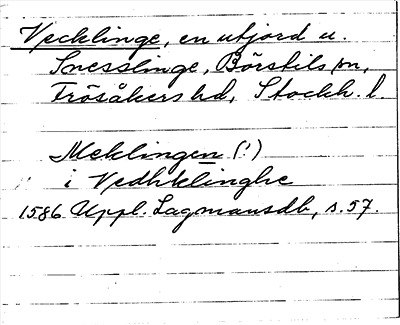 Vecklinge, en utjord u.
Snesslinge, Börstils sn,
Frösåkers hd, Stockh. l.
Meklingen (!)
i Vedhklinghe
1586 Uppl. Lagmansdb, s. 57.